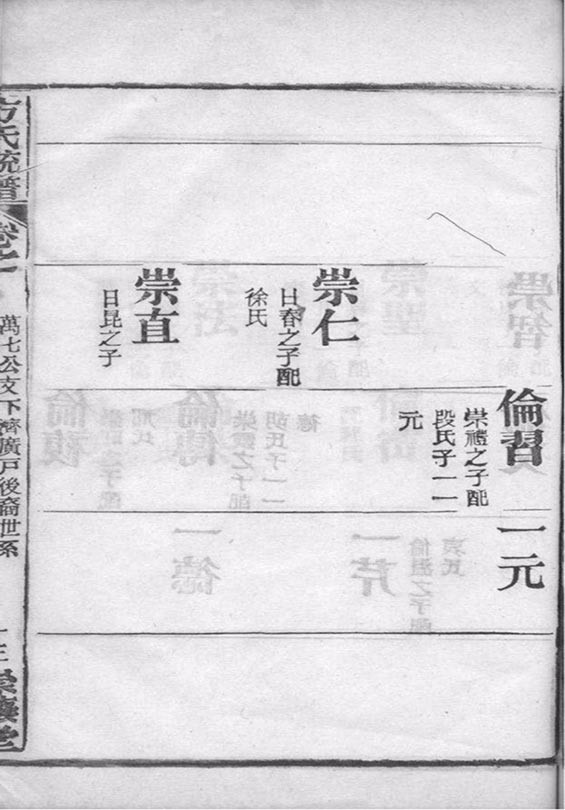 倫習
崇禮之子配
段氏子一一
元
一元
崇仁
日春之子配
徐氏
崇直
日昆之子
方氏統譜
萬七公支下濟廣戶後裔世系